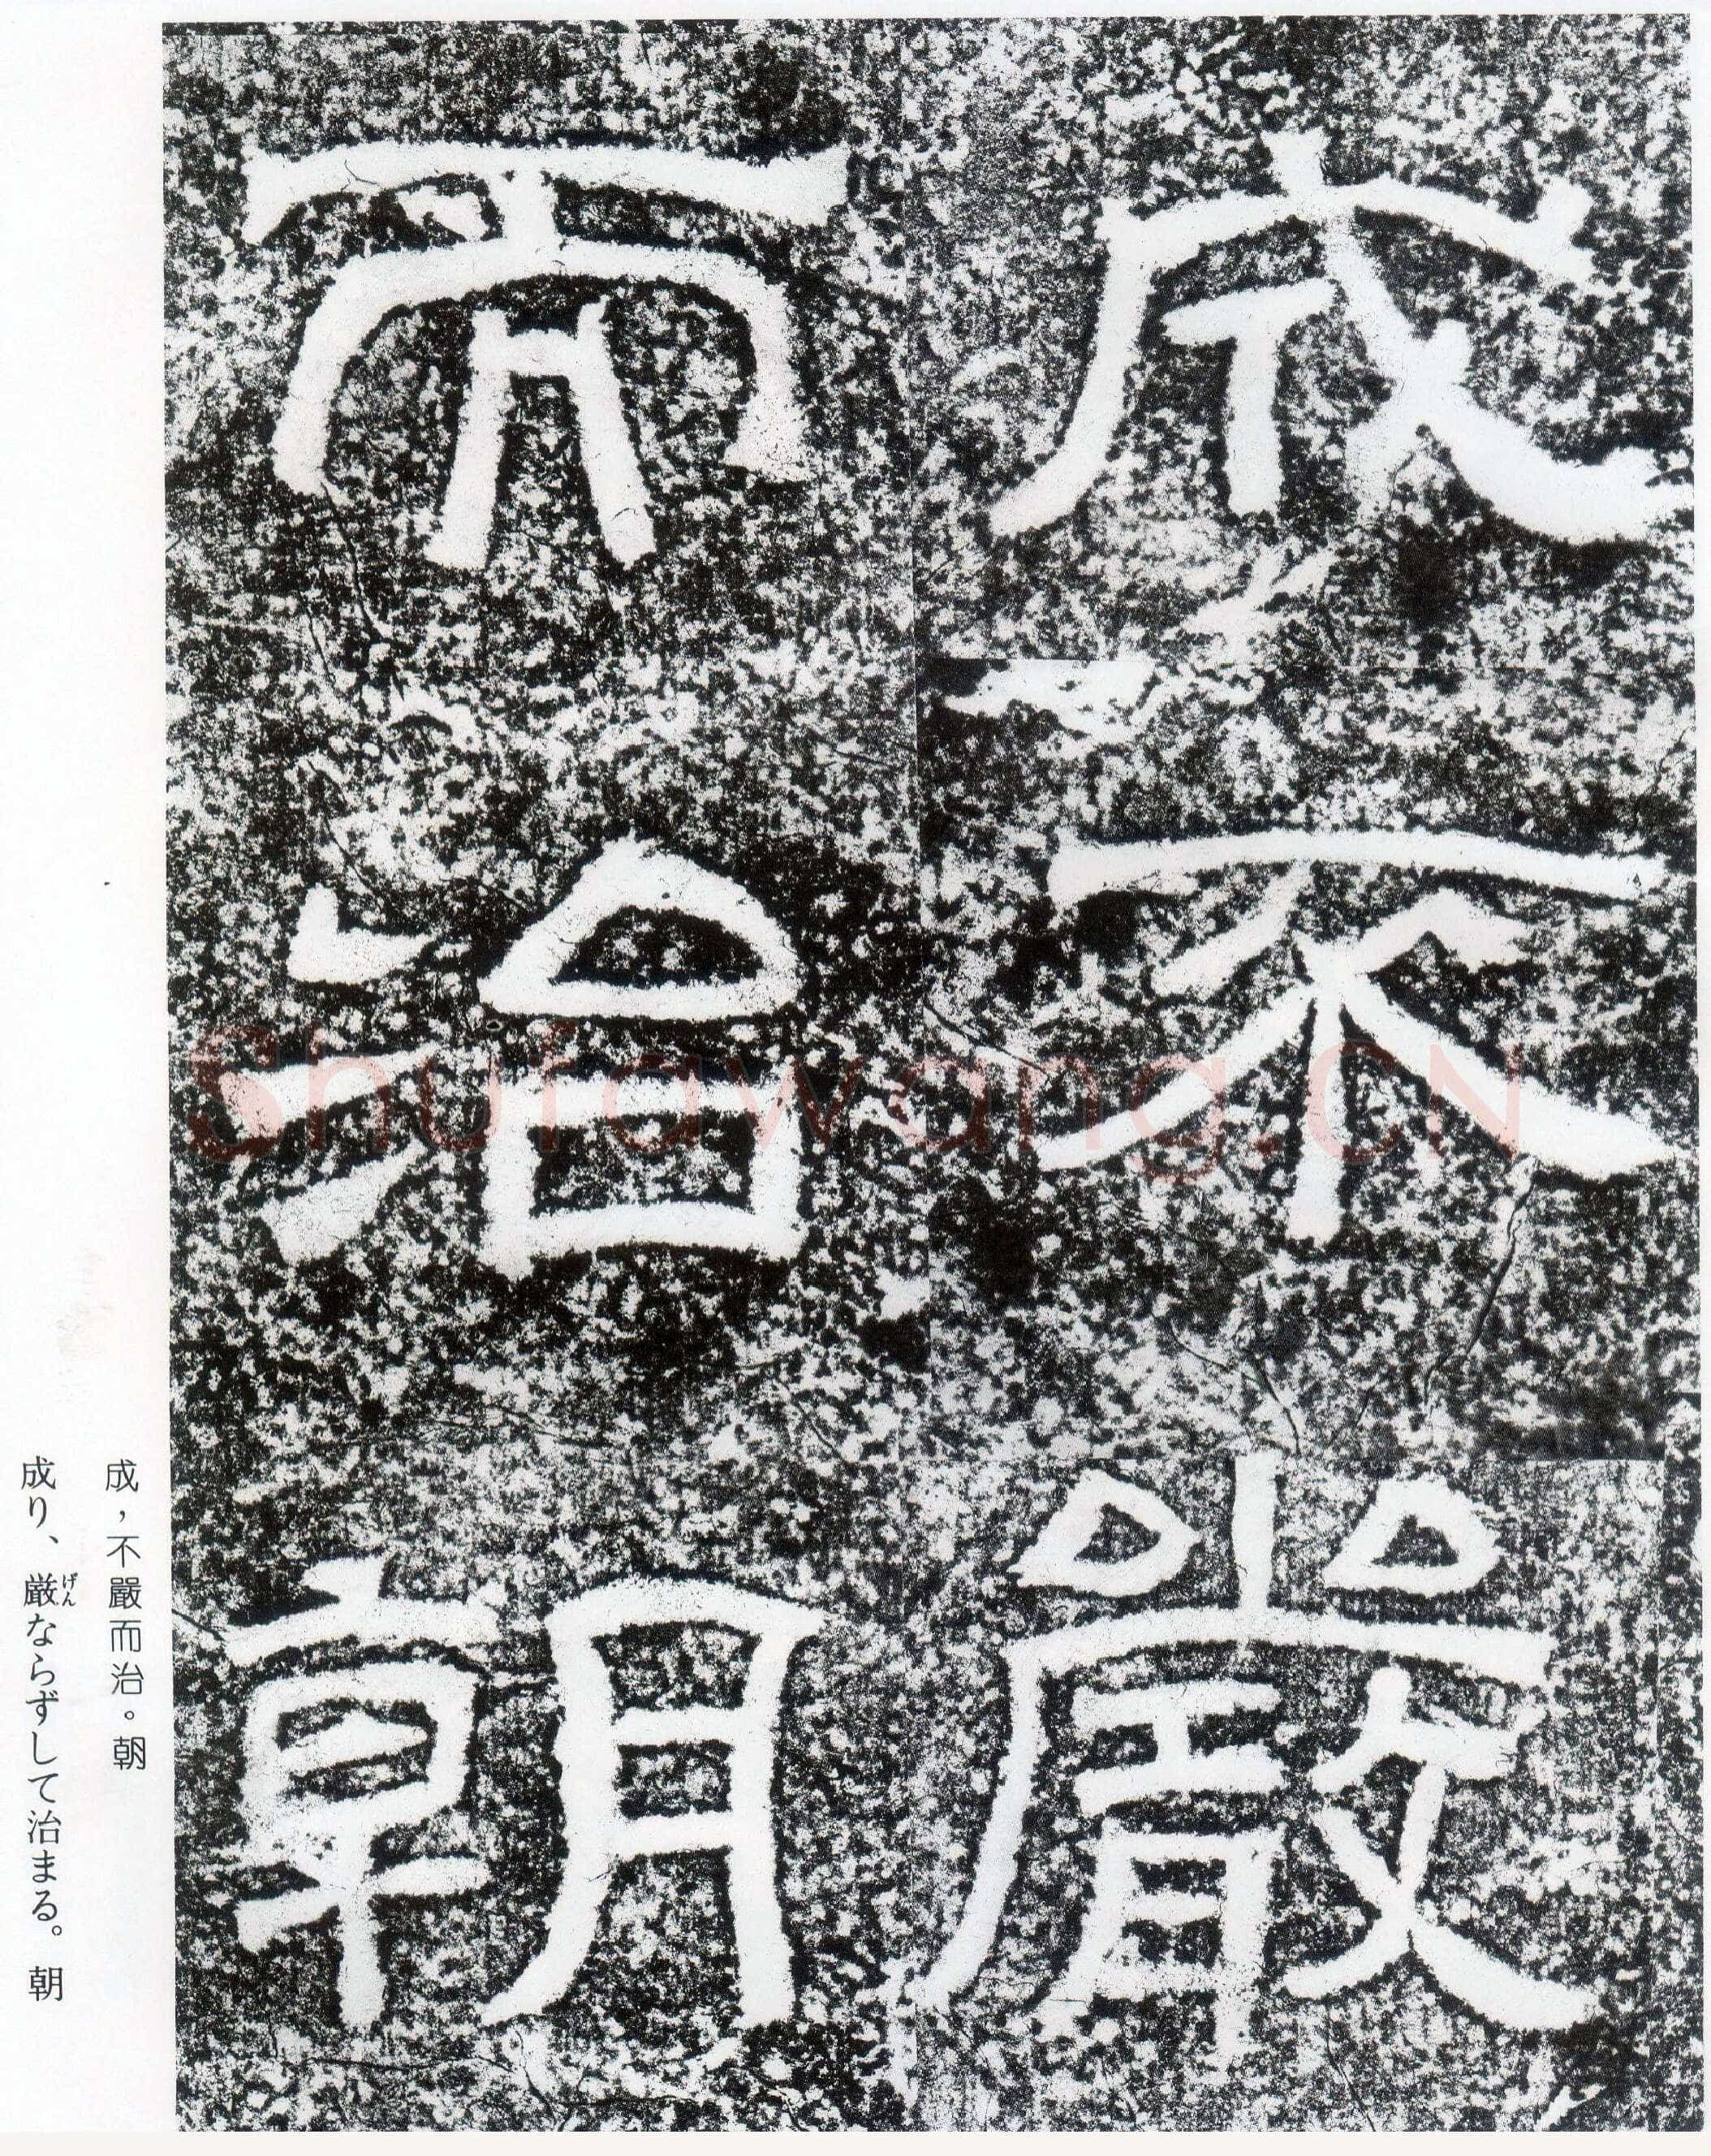 成不嚴
而治朝
成，不嚴而治。朝
成り、厳ならずして治まる。朝
げん
Shufawang.CN